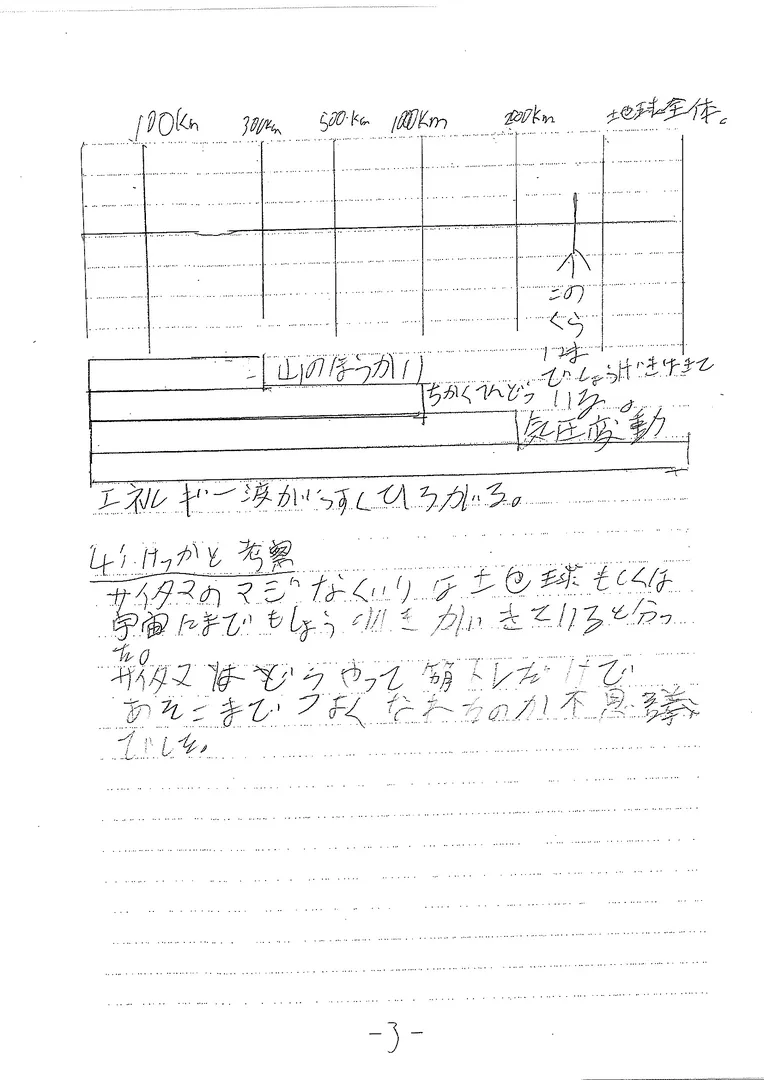 100Km 300Km 500.Km 1000Km 2000Km 地球全体。
この
くら
いは
しょうげきはきて
いる。
山のほうかい
ちかくへんどう
気圧変動
エネルギー波がうすくひろがる。
4、けっかと考察
サイタマのマジなぐりは地球もしくは
宇宙にまでもしょうげきがいきていると分っ
た。
サイタマはどうやって筋トレだけで
あそこまでつよくなれたのか不思議
でした。
-3-